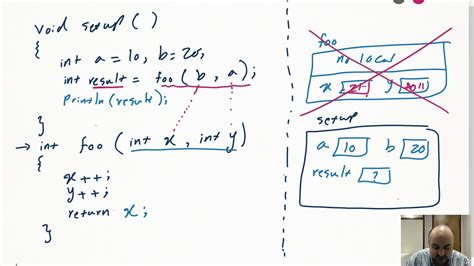 void setup ( )
{
int a = 10, b = 20,
int result = foo ( b , a ) ;
Println (result) ;
}
→ int foo ( int x , int y )
{
x ++ ;
y ++ ;
return x ;
}
foo
no local
x 21 y 11
setup
a 10 b 20
result ?